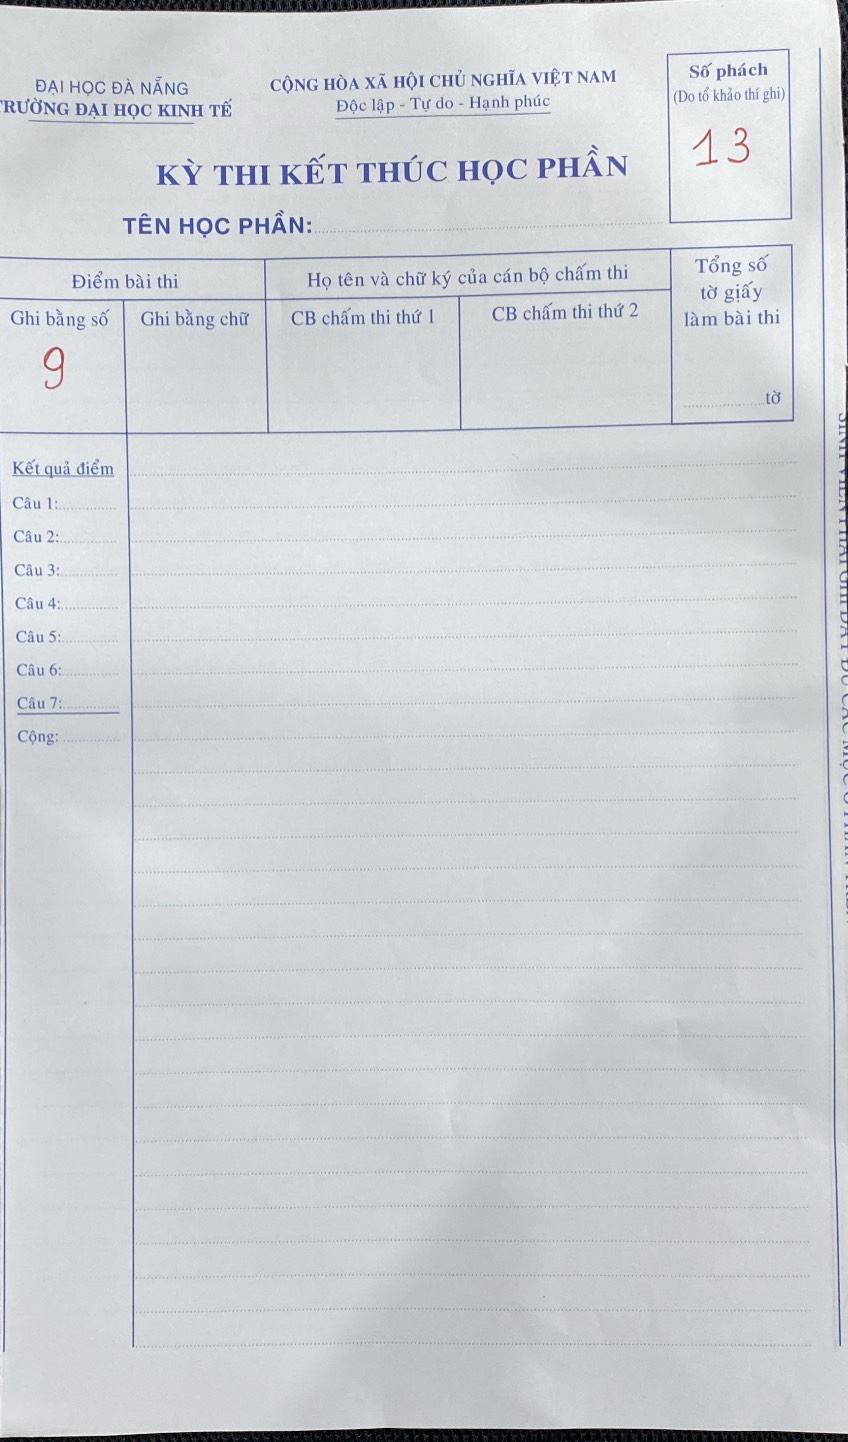 ĐẠI HỌC ĐÀ NẴNG
TRƯỜNG ĐẠI HỌC KINH TẾ
CỘNG HÒA XÃ HỘI CHỦ NGHĨA VIỆT NAM
Độc lập - Tự do - Hạnh phúc
Số phách
(Do tổ khảo thí ghi)
13
KỲ THI KẾT THÚC HỌC PHẦN
TÊN HỌC PHẦN:
Điểm bài thi
Họ tên và chữ ký của cán bộ chấm thi
Tổng số
tờ giấy
làm bài thi
Ghi bằng số
Ghi bằng chữ
CB chấm thi thứ 1
CB chấm thi thứ 2
9
tờ
Kết quả điểm
Câu 1:
Câu 2:
Câu 3:
Câu 4:
Câu 5:
Câu 6:
Câu 7:
Cộng: